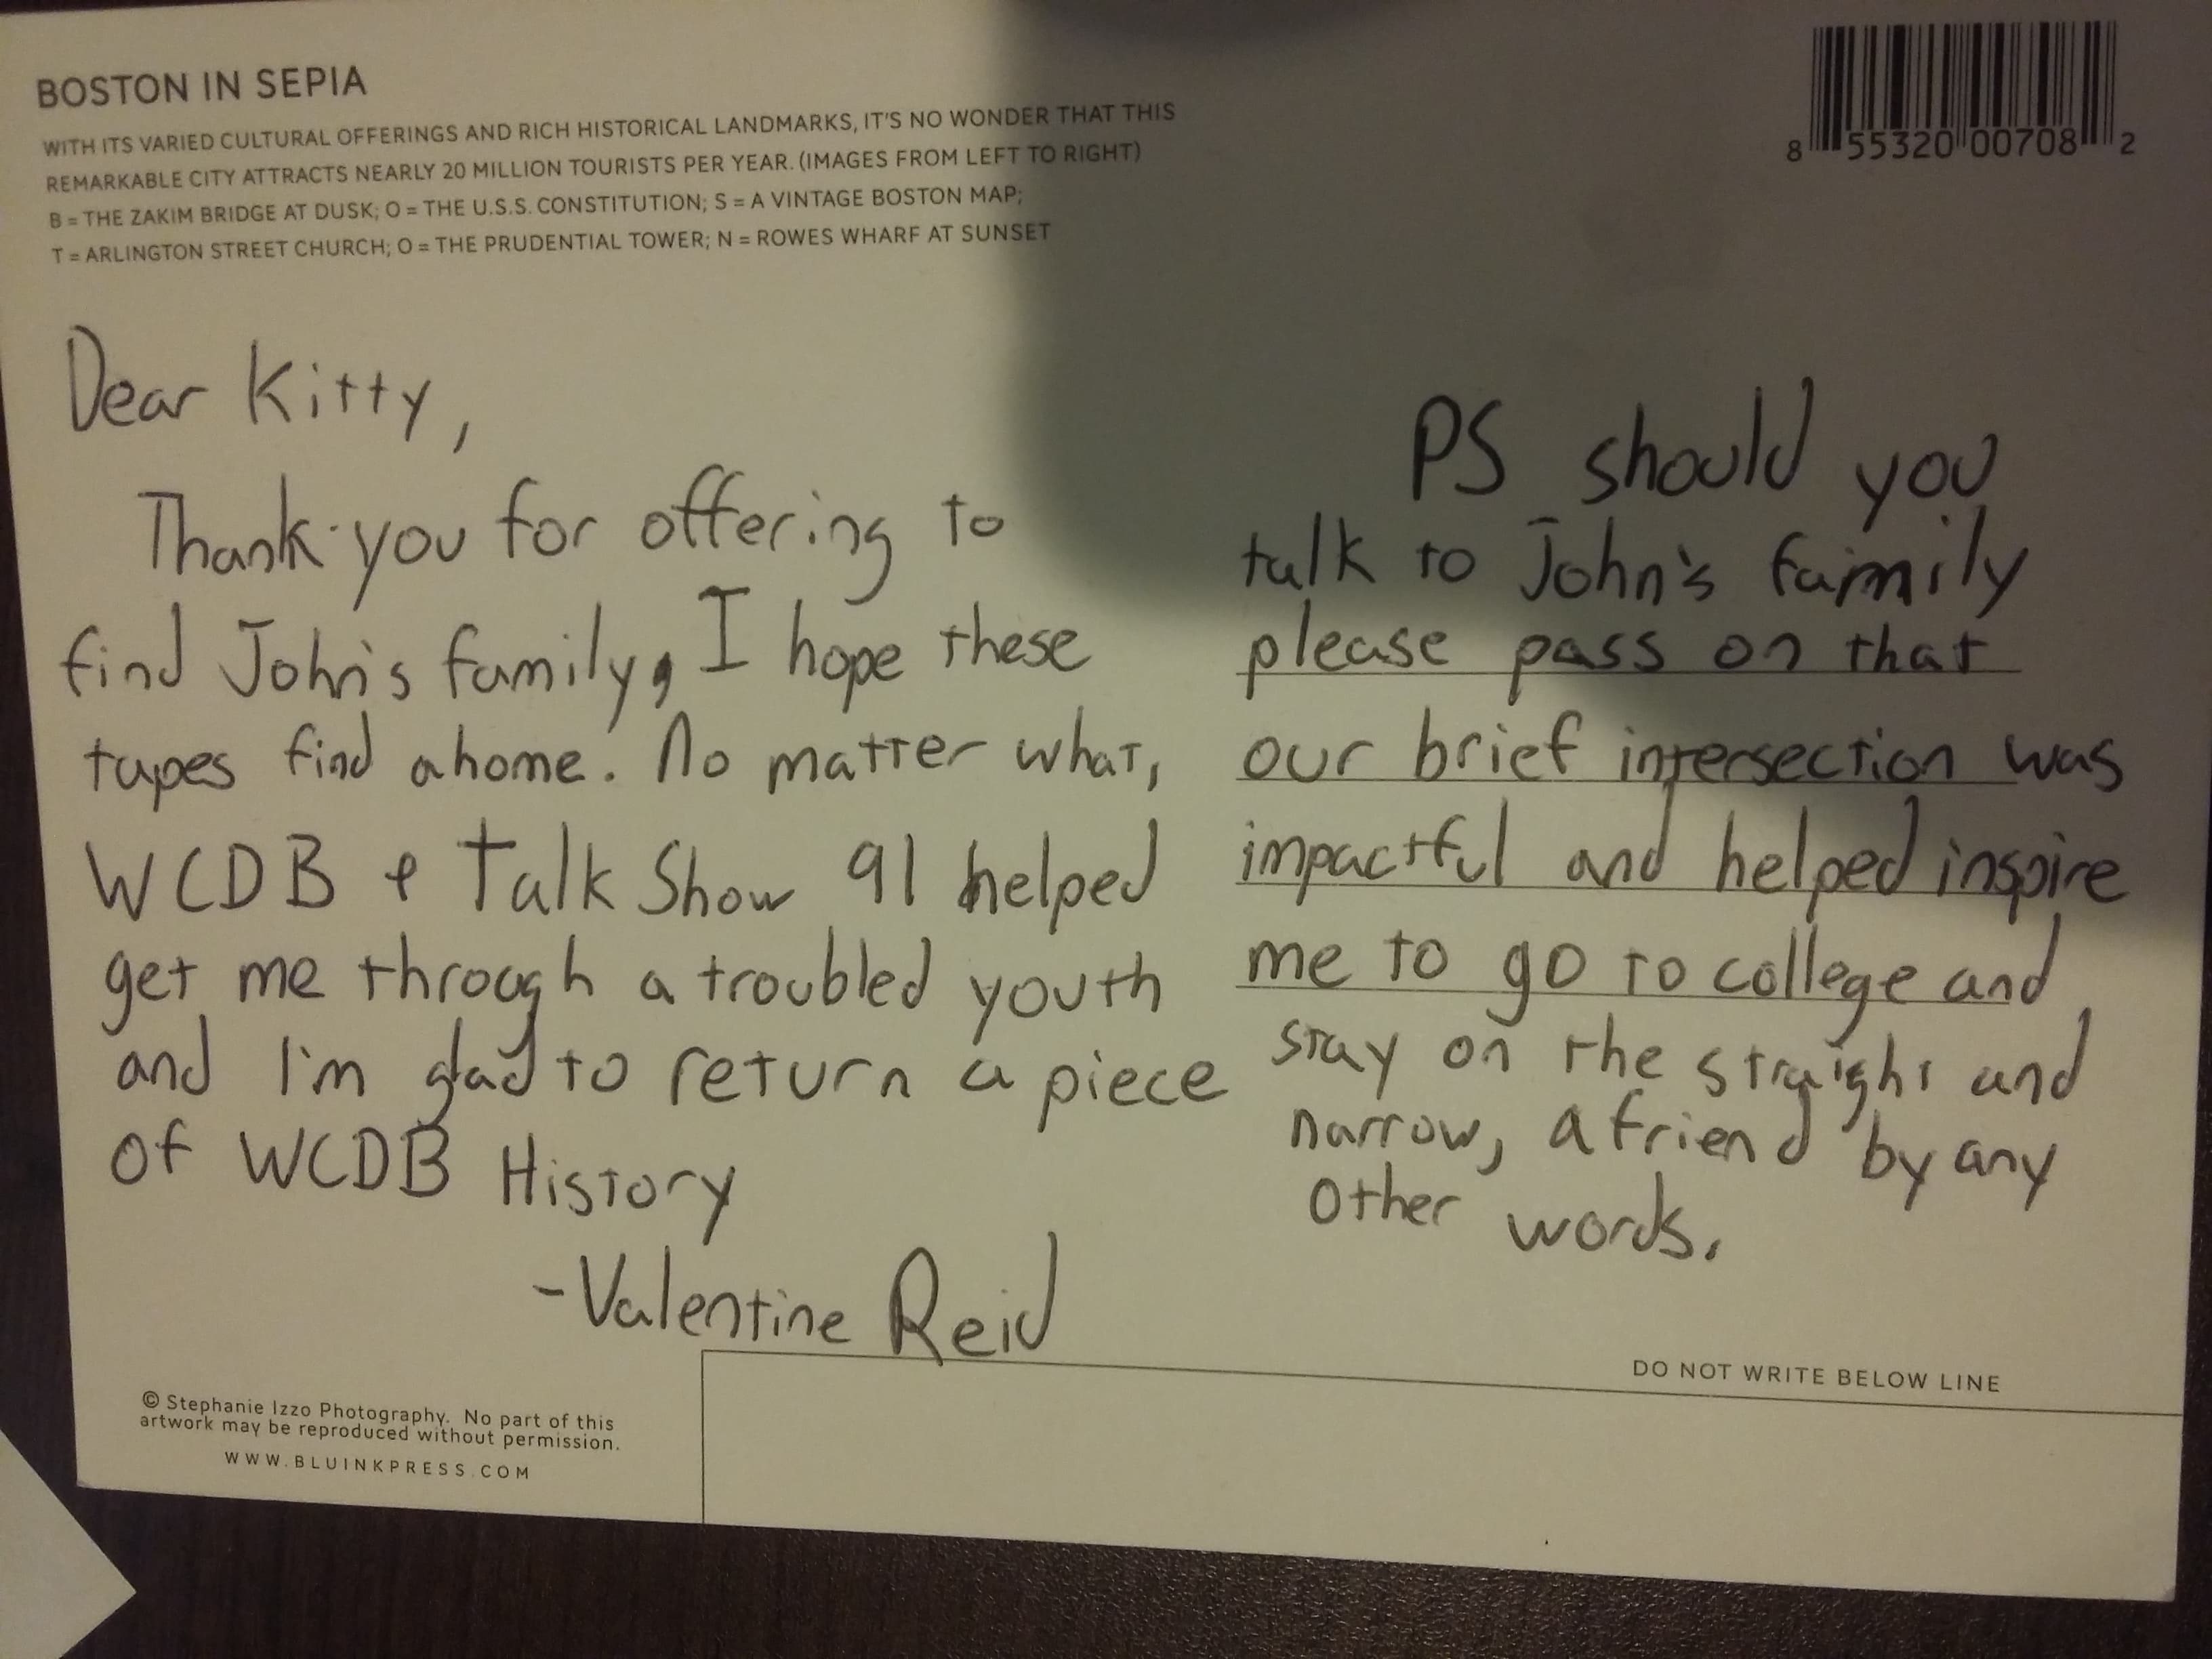 BOSTON IN SEPIA
WITH ITS VARIED CULTURAL OFFERINGS AND RICH HISTORICAL LANDMARKS, IT'S NO WONDER THAT THIS
REMARKABLE CITY ATTRACTS NEARLY 20 MILLION TOURISTS PER YEAR. (IMAGES FROM LEFT TO RIGHT)
B = THE ZAKIM BRIDGE AT DUSK; O = THE U.S.S. CONSTITUTION; S = A VINTAGE BOSTON MAP;
T = ARLINGTON STREET CHURCH; O = THE PRUDENTIAL TOWER; N = ROWES WHARF AT SUNSET
8 55320 00708 2
Dear Kitty,
Thank you for offering to
find John's family, I hope these
tapes find a home. No matter what,
WCDB & Talk Show 91 helped
get me through a troubled youth
and I'm glad to return a piece
of WCDB History
-Valentine Reid
PS should you
talk to John's family
please pass on that
our brief intersection was
impactful and helped inspire
me to go to college and
stay on the straight and
narrow, a friend by any
other words.
DO NOT WRITE BELOW LINE
© Stephanie Izzo Photography. No part of this
artwork may be reproduced without permission.
WWW.BLUINKPRESS.COM